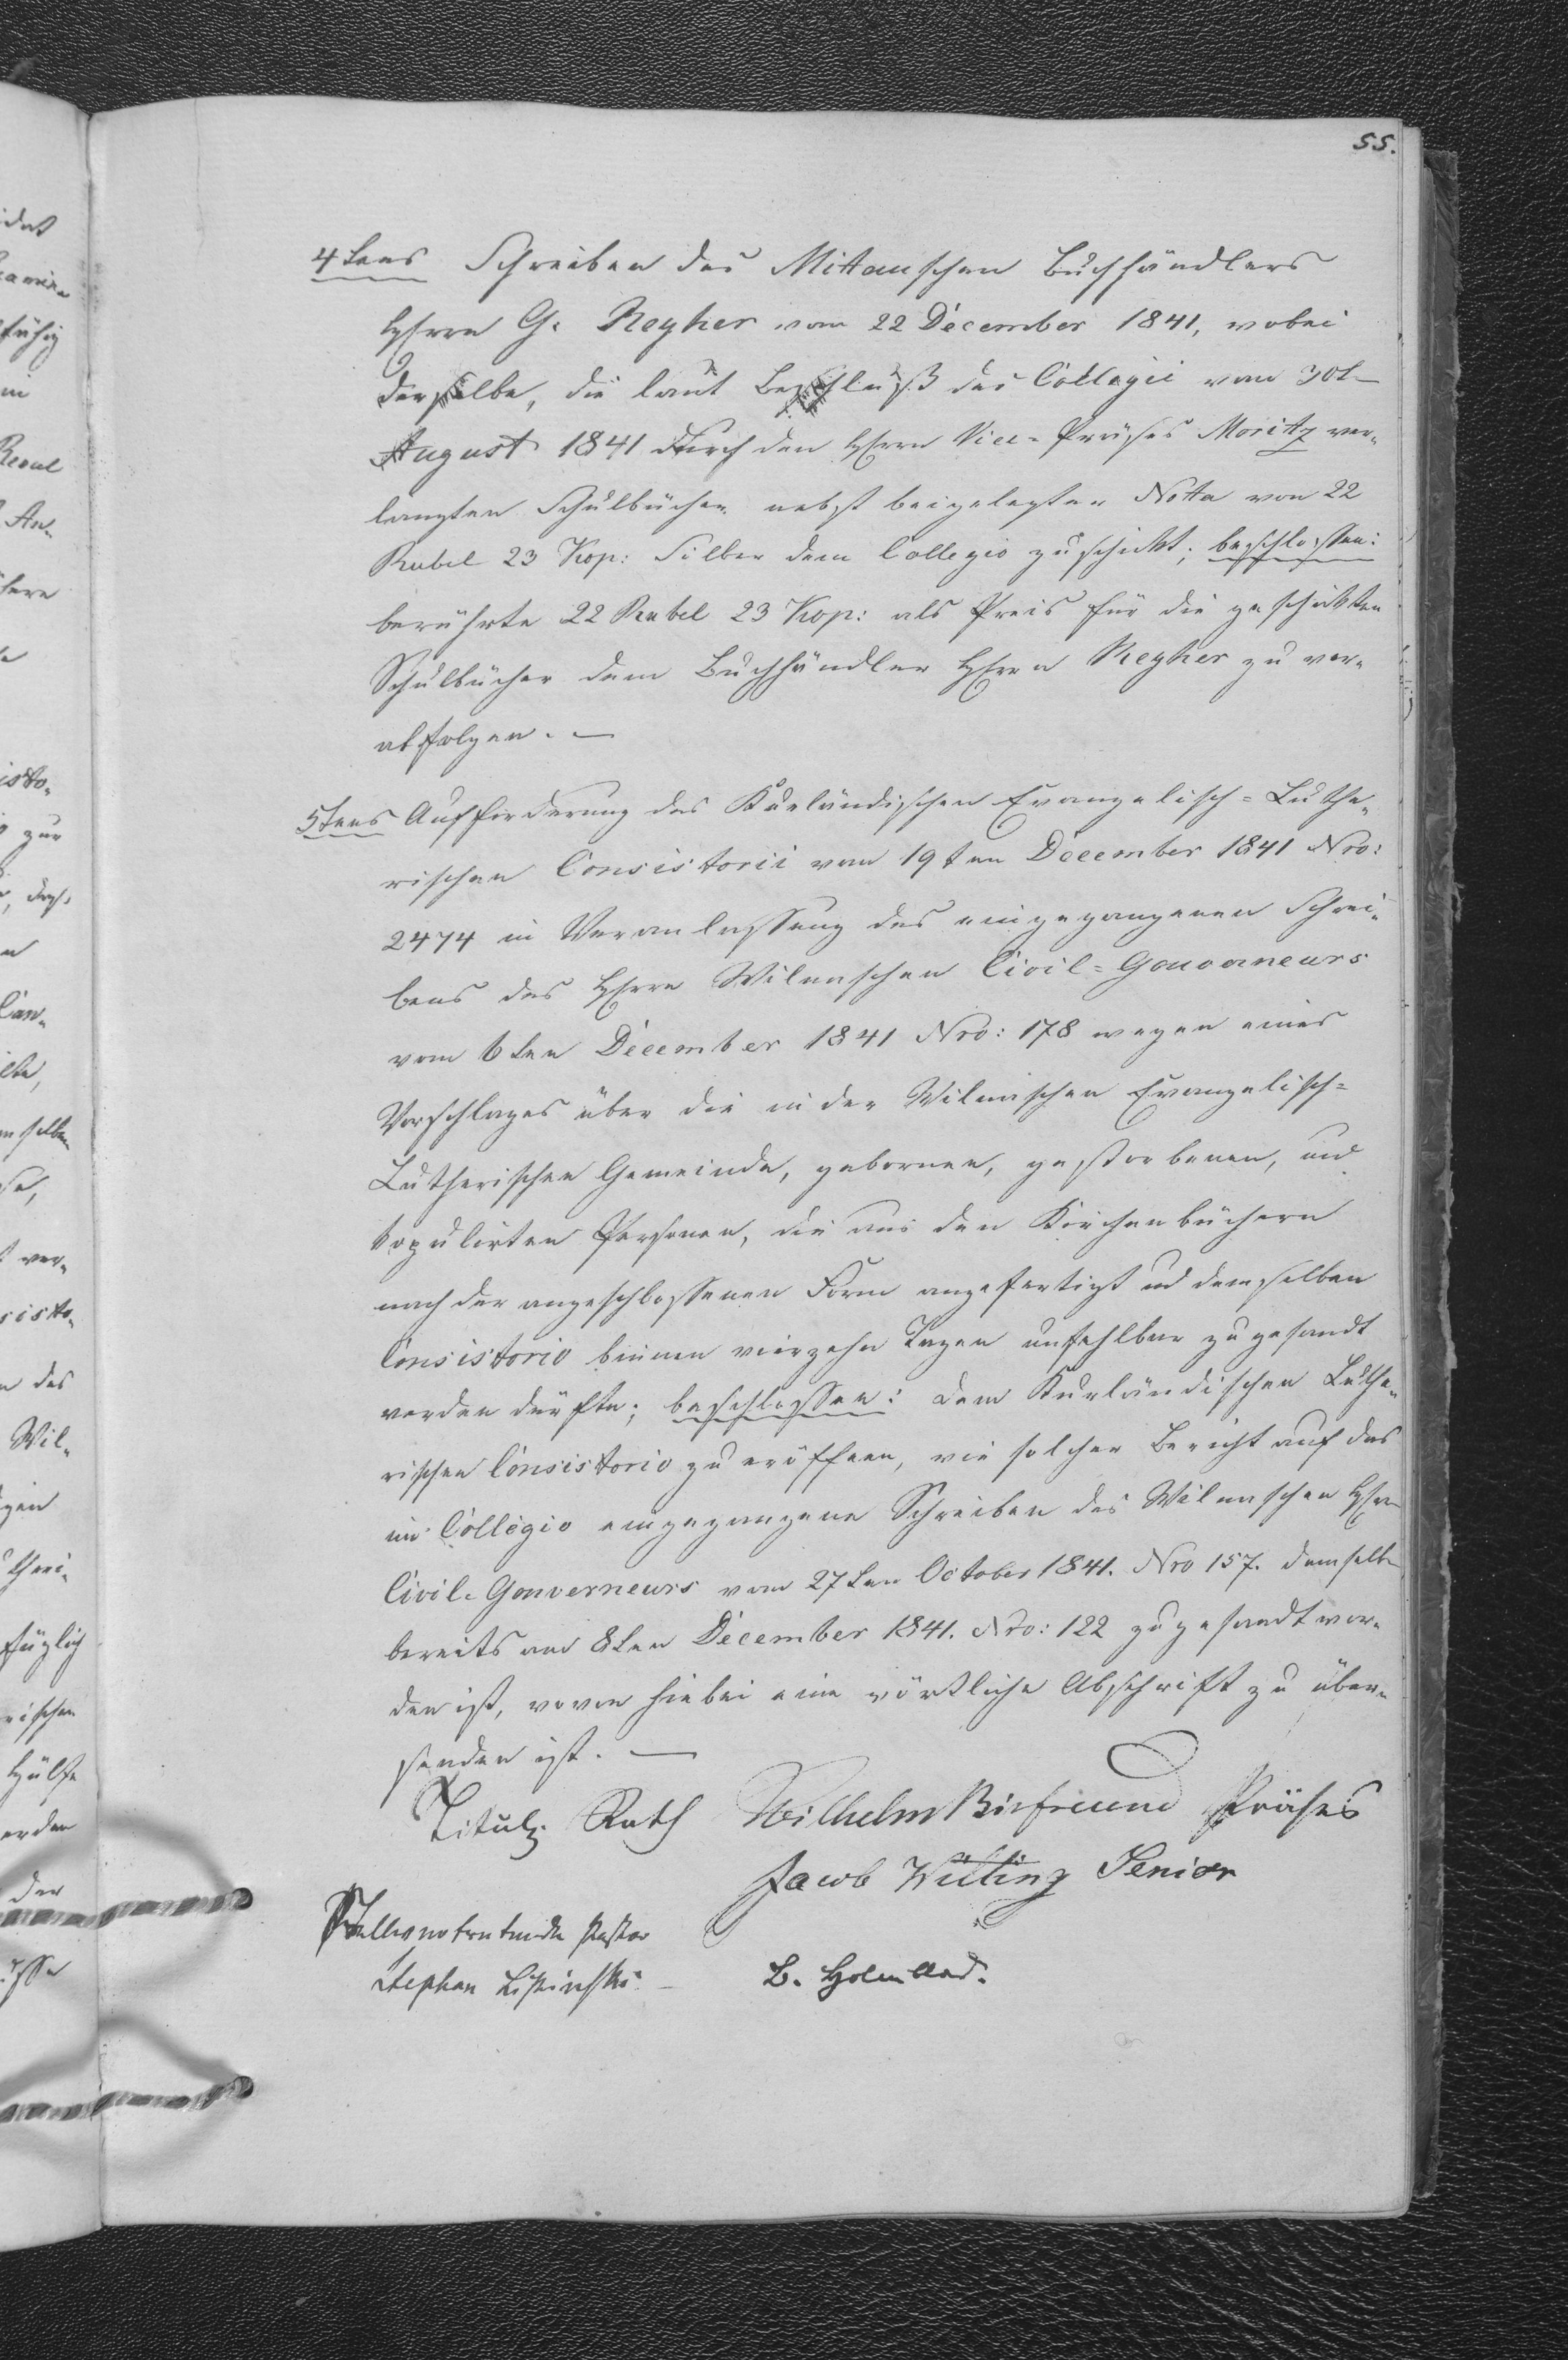 55.
4tens Schreiben des Mitauschen Buchhändlers
Herrn G. Reyher vom 22 December 1841, wobei
derselbe, die laut Beschluß des Collegii vom 30t
August 1841 durch den Herrn Vice-Präses Moritz ver-
langten Schulbücher nebst beigelegter Notta von 22
Rubel 23 Kop: Silber dem Collegio zuschickt; beschlossen:
berührte 22 Rubel 23 Kop: als Preis für die geschickten
Schulbücher dem Buchhändler Herrn Reyher zu ver-
abfolgen. —
5tens Aufforderung des Kurländischen Evangelisch-Luthe-
rischen Consistorii vom 19ten December 1841 Nro:
2474 in Veranlassung des eingegangenen Schrei-
bens des Herrn Wilnaschen Civil-Gouverneurs
vom 6ten December 1841 Nro: 178 wegen eines
Vorschlages über die in der Wilnaschen Evangelisch-
Lutherischen Gemeinde, gebornen, gestorbenen, und
kopulirten Personen, die aus den Kirchenbüchern
nach der angeschlossenen Form angefertigt und demselben
Consistorio binnen vierzehn Tagen unfehlbar zugesandt
werden dürfte; beschlossen: dem Kurländischen Luthe-
rischen Consistorio zu eröffnen, wie solcher Bericht auf das
im Collegio eingegangene Schreiben des Wilnaschen Herrn
Civil-Gouverneurs vom 27ten October 1841. Nro 157. demselben
bereits am 8ten December 1841. Nro: 122 zugesandt wor-
den ist, wovon hiebei eine wörtliche Abschrift zu über-
senden ist. —
Titulz. Rath Wilhelm Birfreund Präses
Jacob Witting Senior
Stellvertretende Pastor
Stephan Lipinski. —